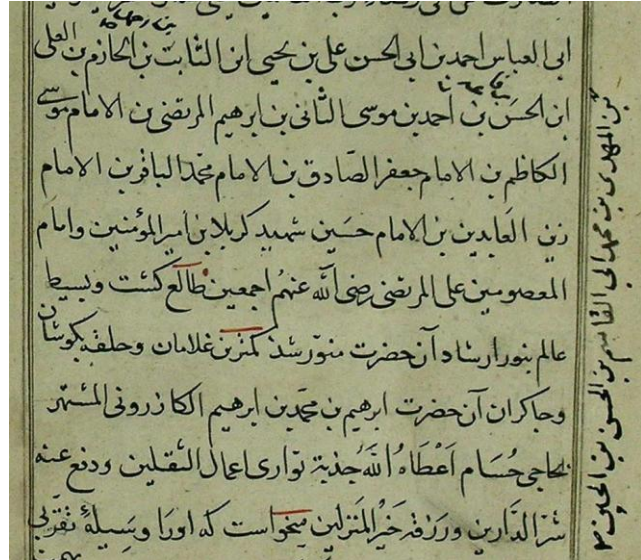 ابی العباس احمد بن ابی الحسن علی بن یحیی ابن الثابت بن الحازم بن العلی
ابن الحسن بن احمد بن موسی الثانی بن ابرهیم المرتضی بن الامام موسی
الکاظم بن الامام جعفر الصادق بن الامام محمد الباقر بن الامام
زین العابدین بن الامام حسین شهید کربلا بن امیر المؤمنین وامام
المعصومین علی المرتضی رضی الله عنهم اجمعین طالع کشت و بسیط
عالم بنور ارشاد آن حضرت منور شد کمترین غلامان وحلقه بکوشان
وچاکران آن حضرت ابرهیم بن محمد بن ابرهیم الکازرونی المشتهر
بحاجی حُسَام اَعْطَاهُ اللهُ جذبة توازی اعمال الثقلین ودفع عنه
شر الدارین ورزقه خیر المنزلین میخواست که اورا وَسِیلهٔ تقربی
بن المهدی بن محمد ابی القاسم بن الحسن بن الحسین